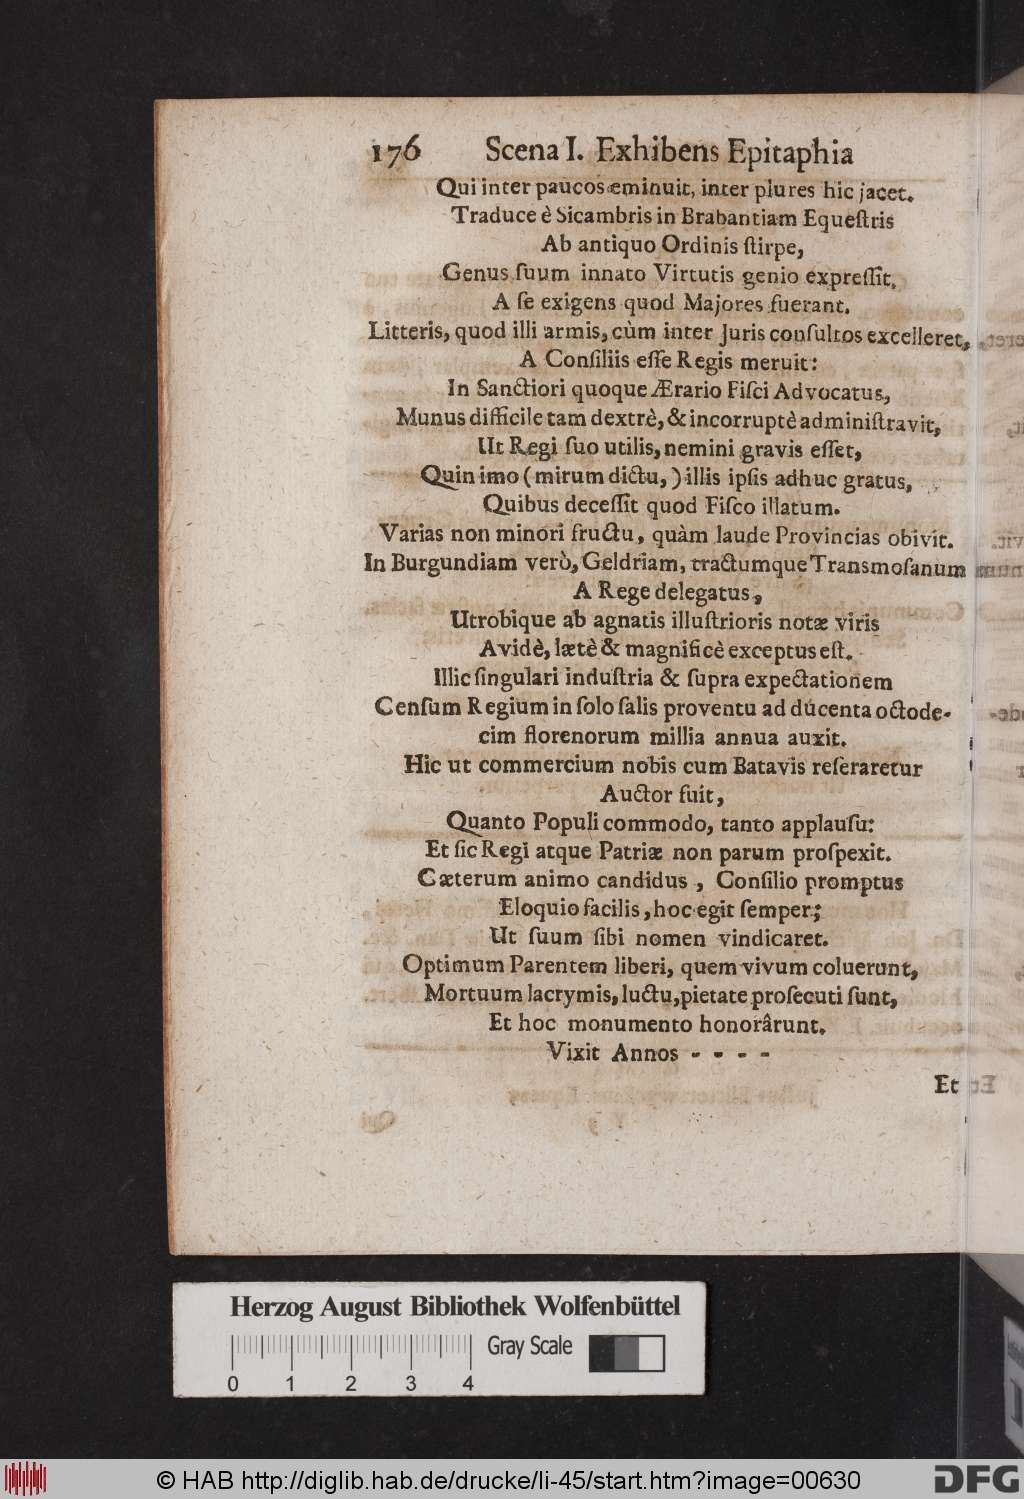 176 Scena I. Exhibens Epitaphia
Qui inter paucos eminuit, inter plures hic jacet.
Traduce è Sicambris in Brabantiam Equeſtris
Ab antiquo Ordinis ſtirpe,
Genus ſuum innato Virtutis genio expreſſit,
A ſe exigens quod Majores fuerant.
Litteris, quod illi armis, cùm inter Juris conſultos excelleret,
A Conſiliis eſſe Regis meruit:
In Sanctiori quoque Ærario Fiſci Advocatus,
Munus difficile tam dextrè, & incorruptè adminiſtravit,
Ut Regi ſuo utilis, nemini gravis eſſet,
Quin imo (mirum dictu,) illis ipſis adhuc gratus,
Quibus deceſſit quod Fiſco illatum.
Varias non minori fructu, quàm laude Provincias obivit.
In Burgundiam verò, Geldriam, tractumque Transmoſanum
A Rege delegatus,
Utrobique ab agnatis illuſtrioris notæ viris
Avidè, lætè & magnificè exceptus eſt.
Illic ſingulari induſtria & ſupra expectationem
Cenſum Regium in ſolo ſalis proventu ad ducenta octode-
cim florenorum millia annua auxit.
Hic ut commercium nobis cum Batavis reſeraretur
Auctor fuit,
Quanto Populi commodo, tanto applauſu:
Et ſic Regi atque Patriæ non parum proſpexit.
Cæterum animo candidus, Conſilio promptus
Eloquio facilis, hoc egit ſemper;
Ut ſuum ſibi nomen vindicaret.
Optimum Parentem liberi, quem vivum coluerunt,
Mortuum lacrymis, luctu, pietate proſecuti ſunt,
Et hoc monumento honorârunt.
Vixit Annos - - - -
Et
Herzog August Bibliothek Wolfenbüttel
Gray Scale
0 1 2 3 4
© HAB http://diglib.hab.de/drucke/li-45/start.htm?image=00630
DFG